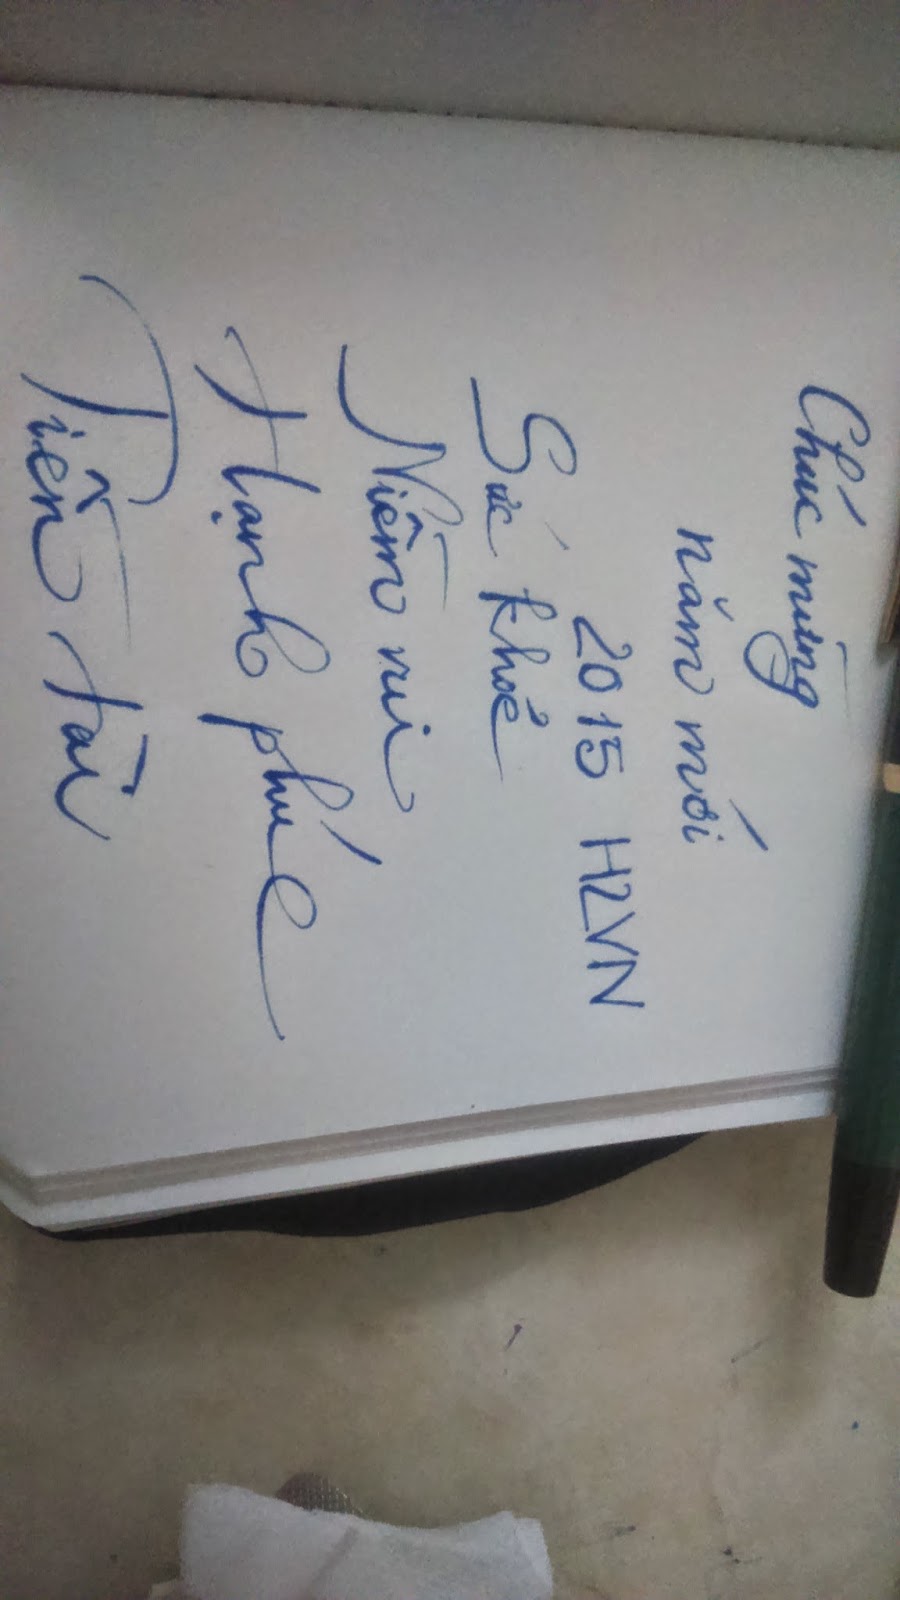 Chúc mừng
năm mới
2015 H2VN
Sức khoẻ
Niềm vui
Hạnh phúc
Tiền tài